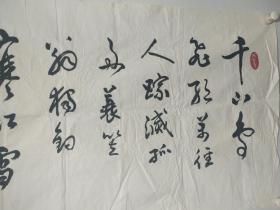 千山鳥
飛絕萬徑
人踪滅孤
舟蓑笠
翁獨釣
寒江雪